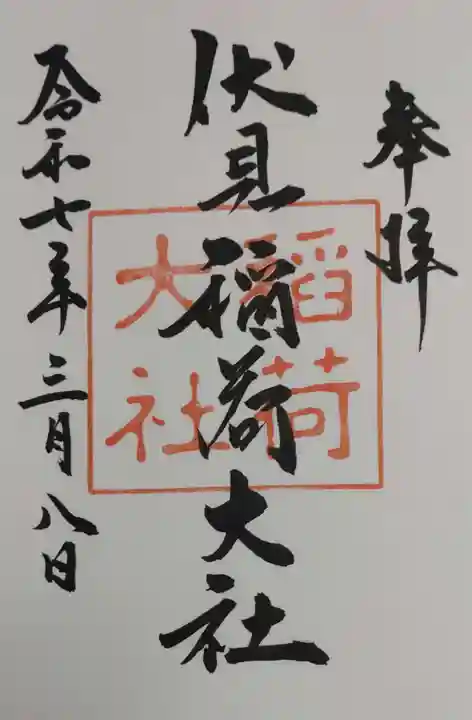 奉拝
伏見稲荷大社
稲荷
大社
令和七年三月八日